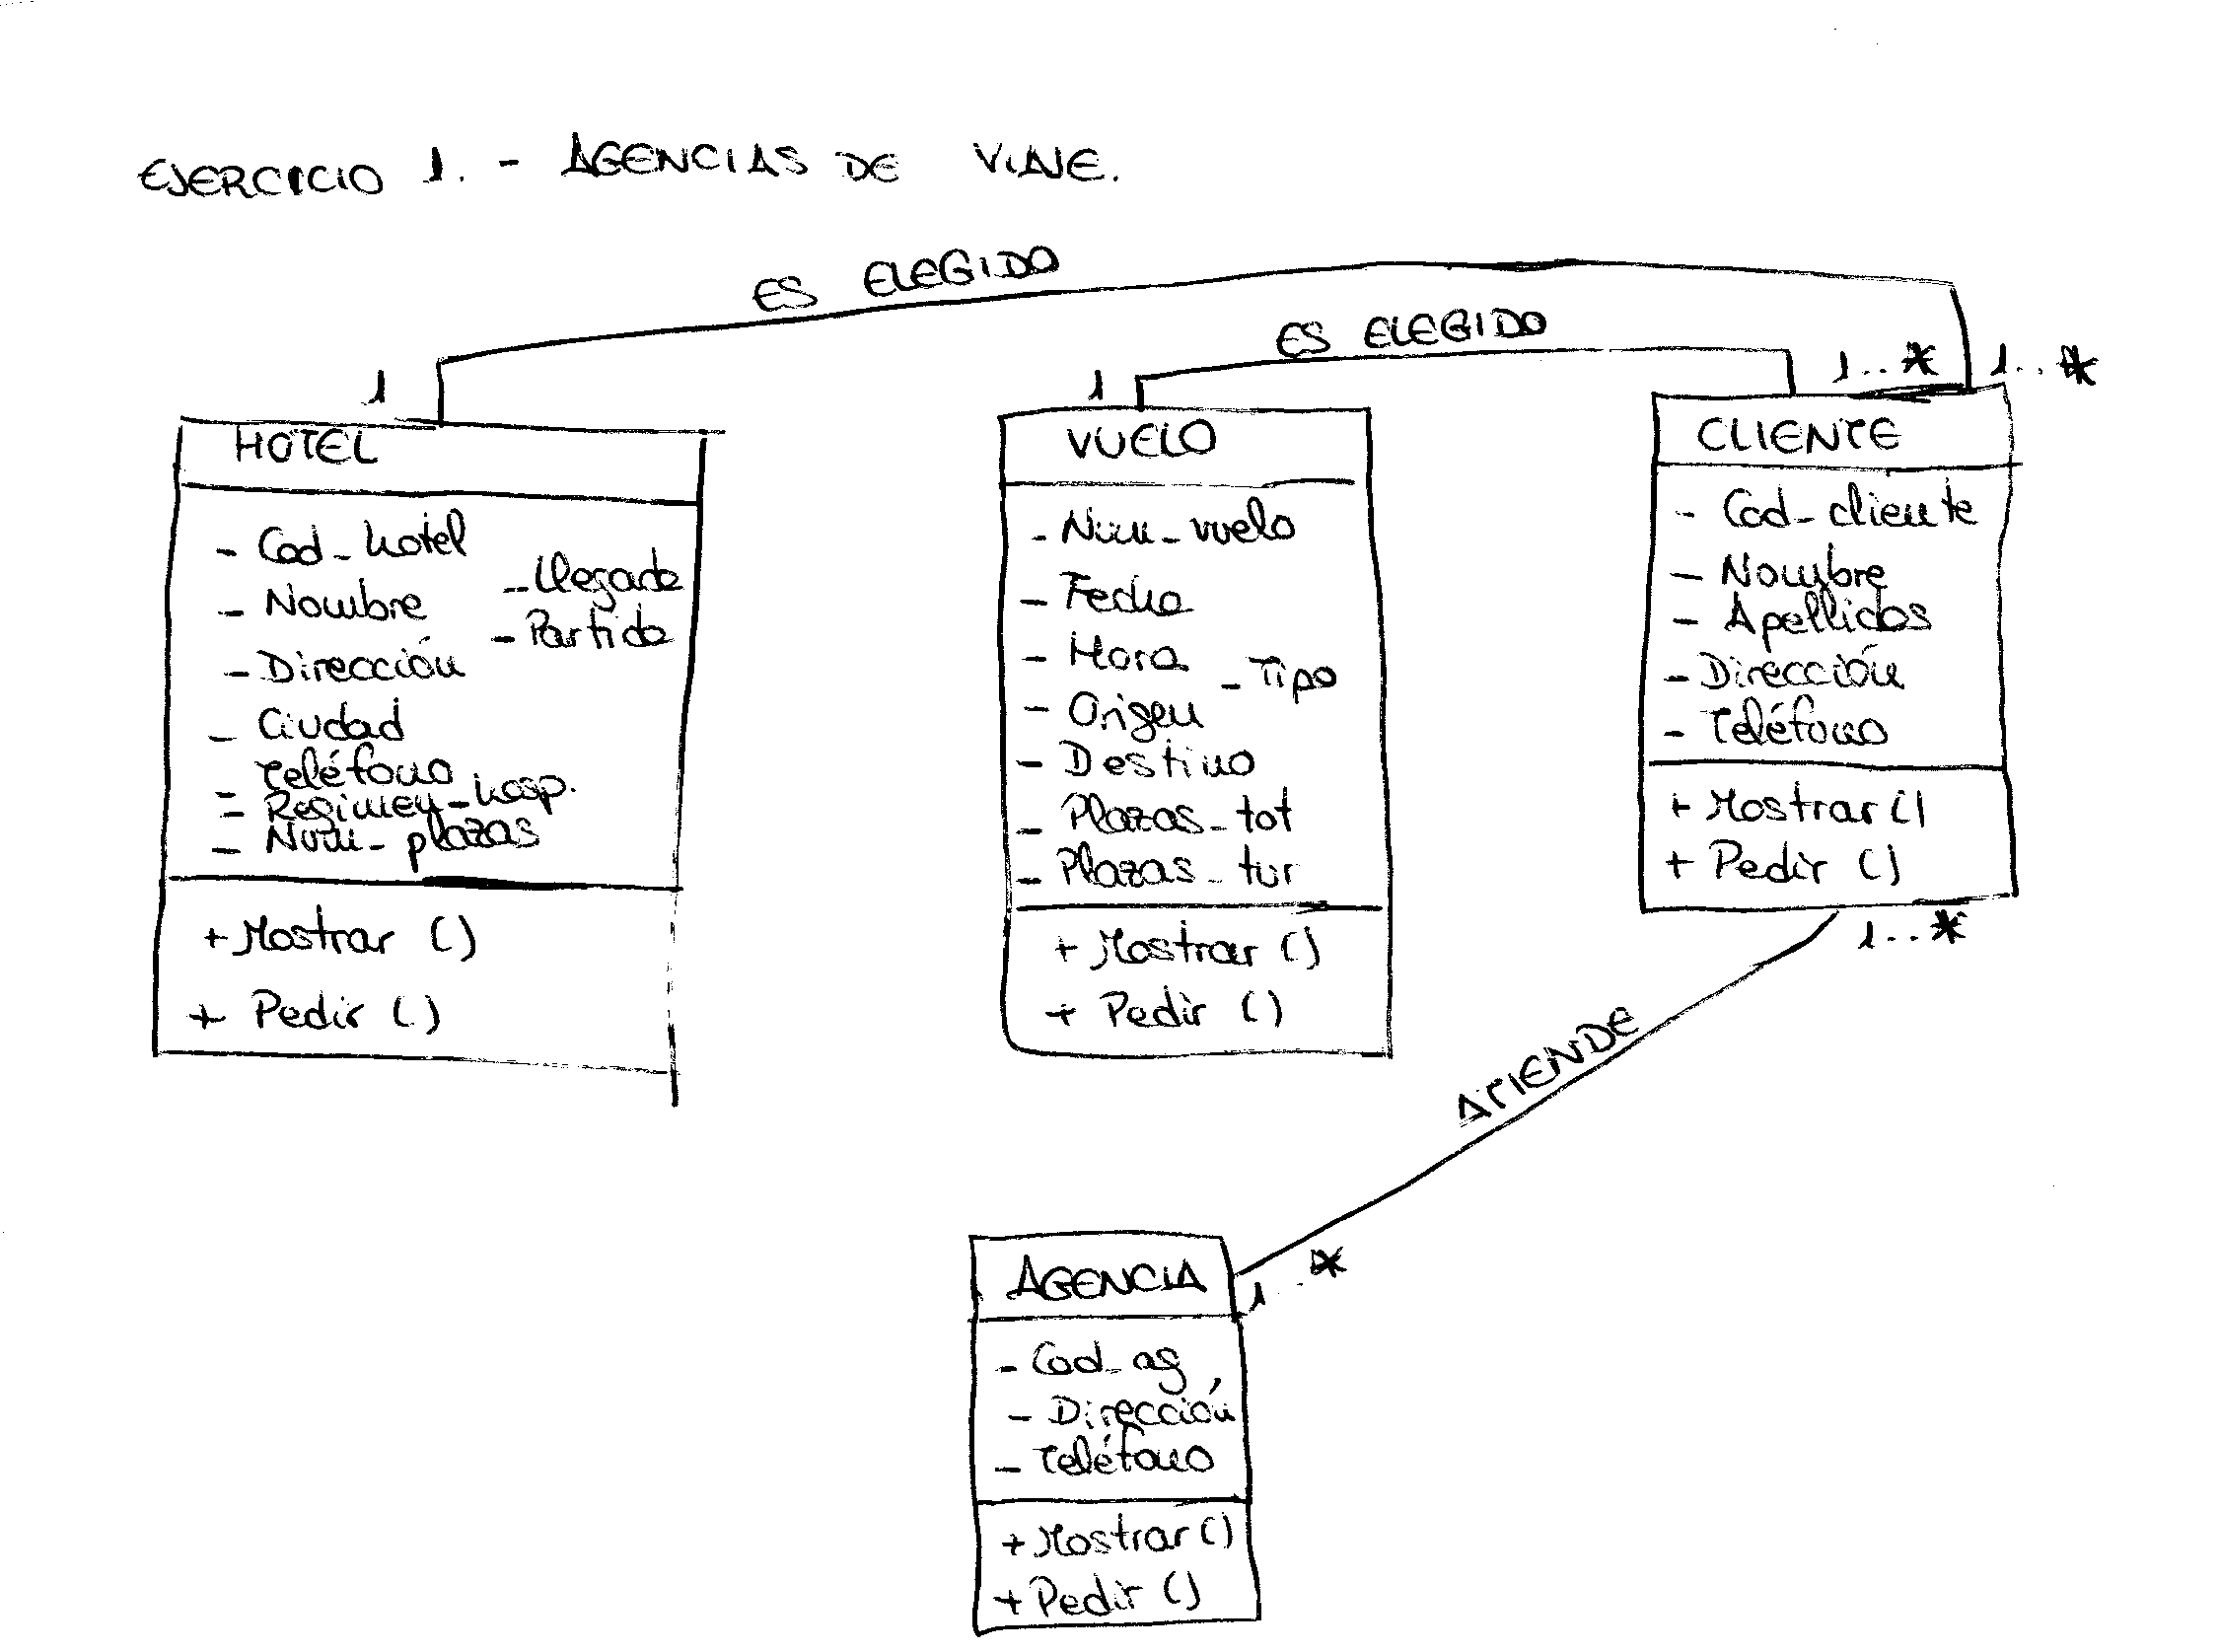 EJERCICIO 1. - AGENCIAS DE VIAJE.
ES ELEGIDO
ES ELEGIDO
1
1
1..*
1..*
HOTEL
- Cod_hotel
- Nombre
- Dirección
- Ciudad
- Teléfono
- Regimen_hosp.
- Num_plazas
- Llegada
- Partida
+ Mostrar ()
+ Pedir ()
VUELO
- Num_vuelo
- Fecha
- Hora
- Origen
- Destino
- Plazas_tot
- Plazas_tur
- Tipo
+ Mostrar ()
+ Pedir ()
CLIENTE
- Cod_cliente
- Nombre
- Apellidos
- Dirección
- Teléfono
+ Mostrar ()
+ Pedir ()
1..*
ATIENDE
1..*
AGENCIA
- Cod_ag
- Dirección
- Teléfono
+ Mostrar ()
+ Pedir ()